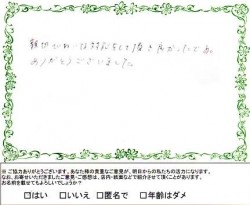 親切でていねいな対応をして頂き良かったです。
ありがとうございました
※ご協力ありがとうございます。あなた様の貴重なご意見が、明日からの私たちの活力になります。
なお、お寄せいただきましたご意見・ご感想は、店内・紙面などで紹介させて頂くことがあります。
お名前を載せてもよろしいでしょうか？
□はい □いいえ □匿名で □年齢はダメ